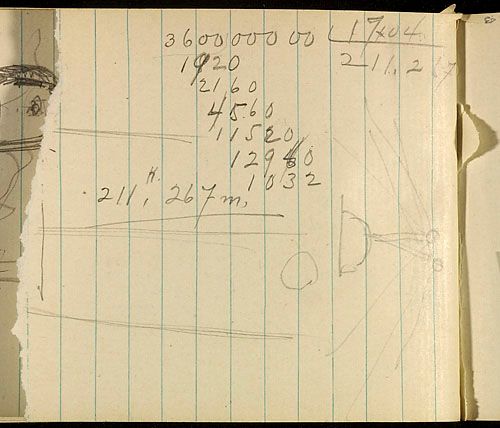 360000000 1704
1920 211,267
2160
4560
11520
12960
1032
211,H. 267 m.